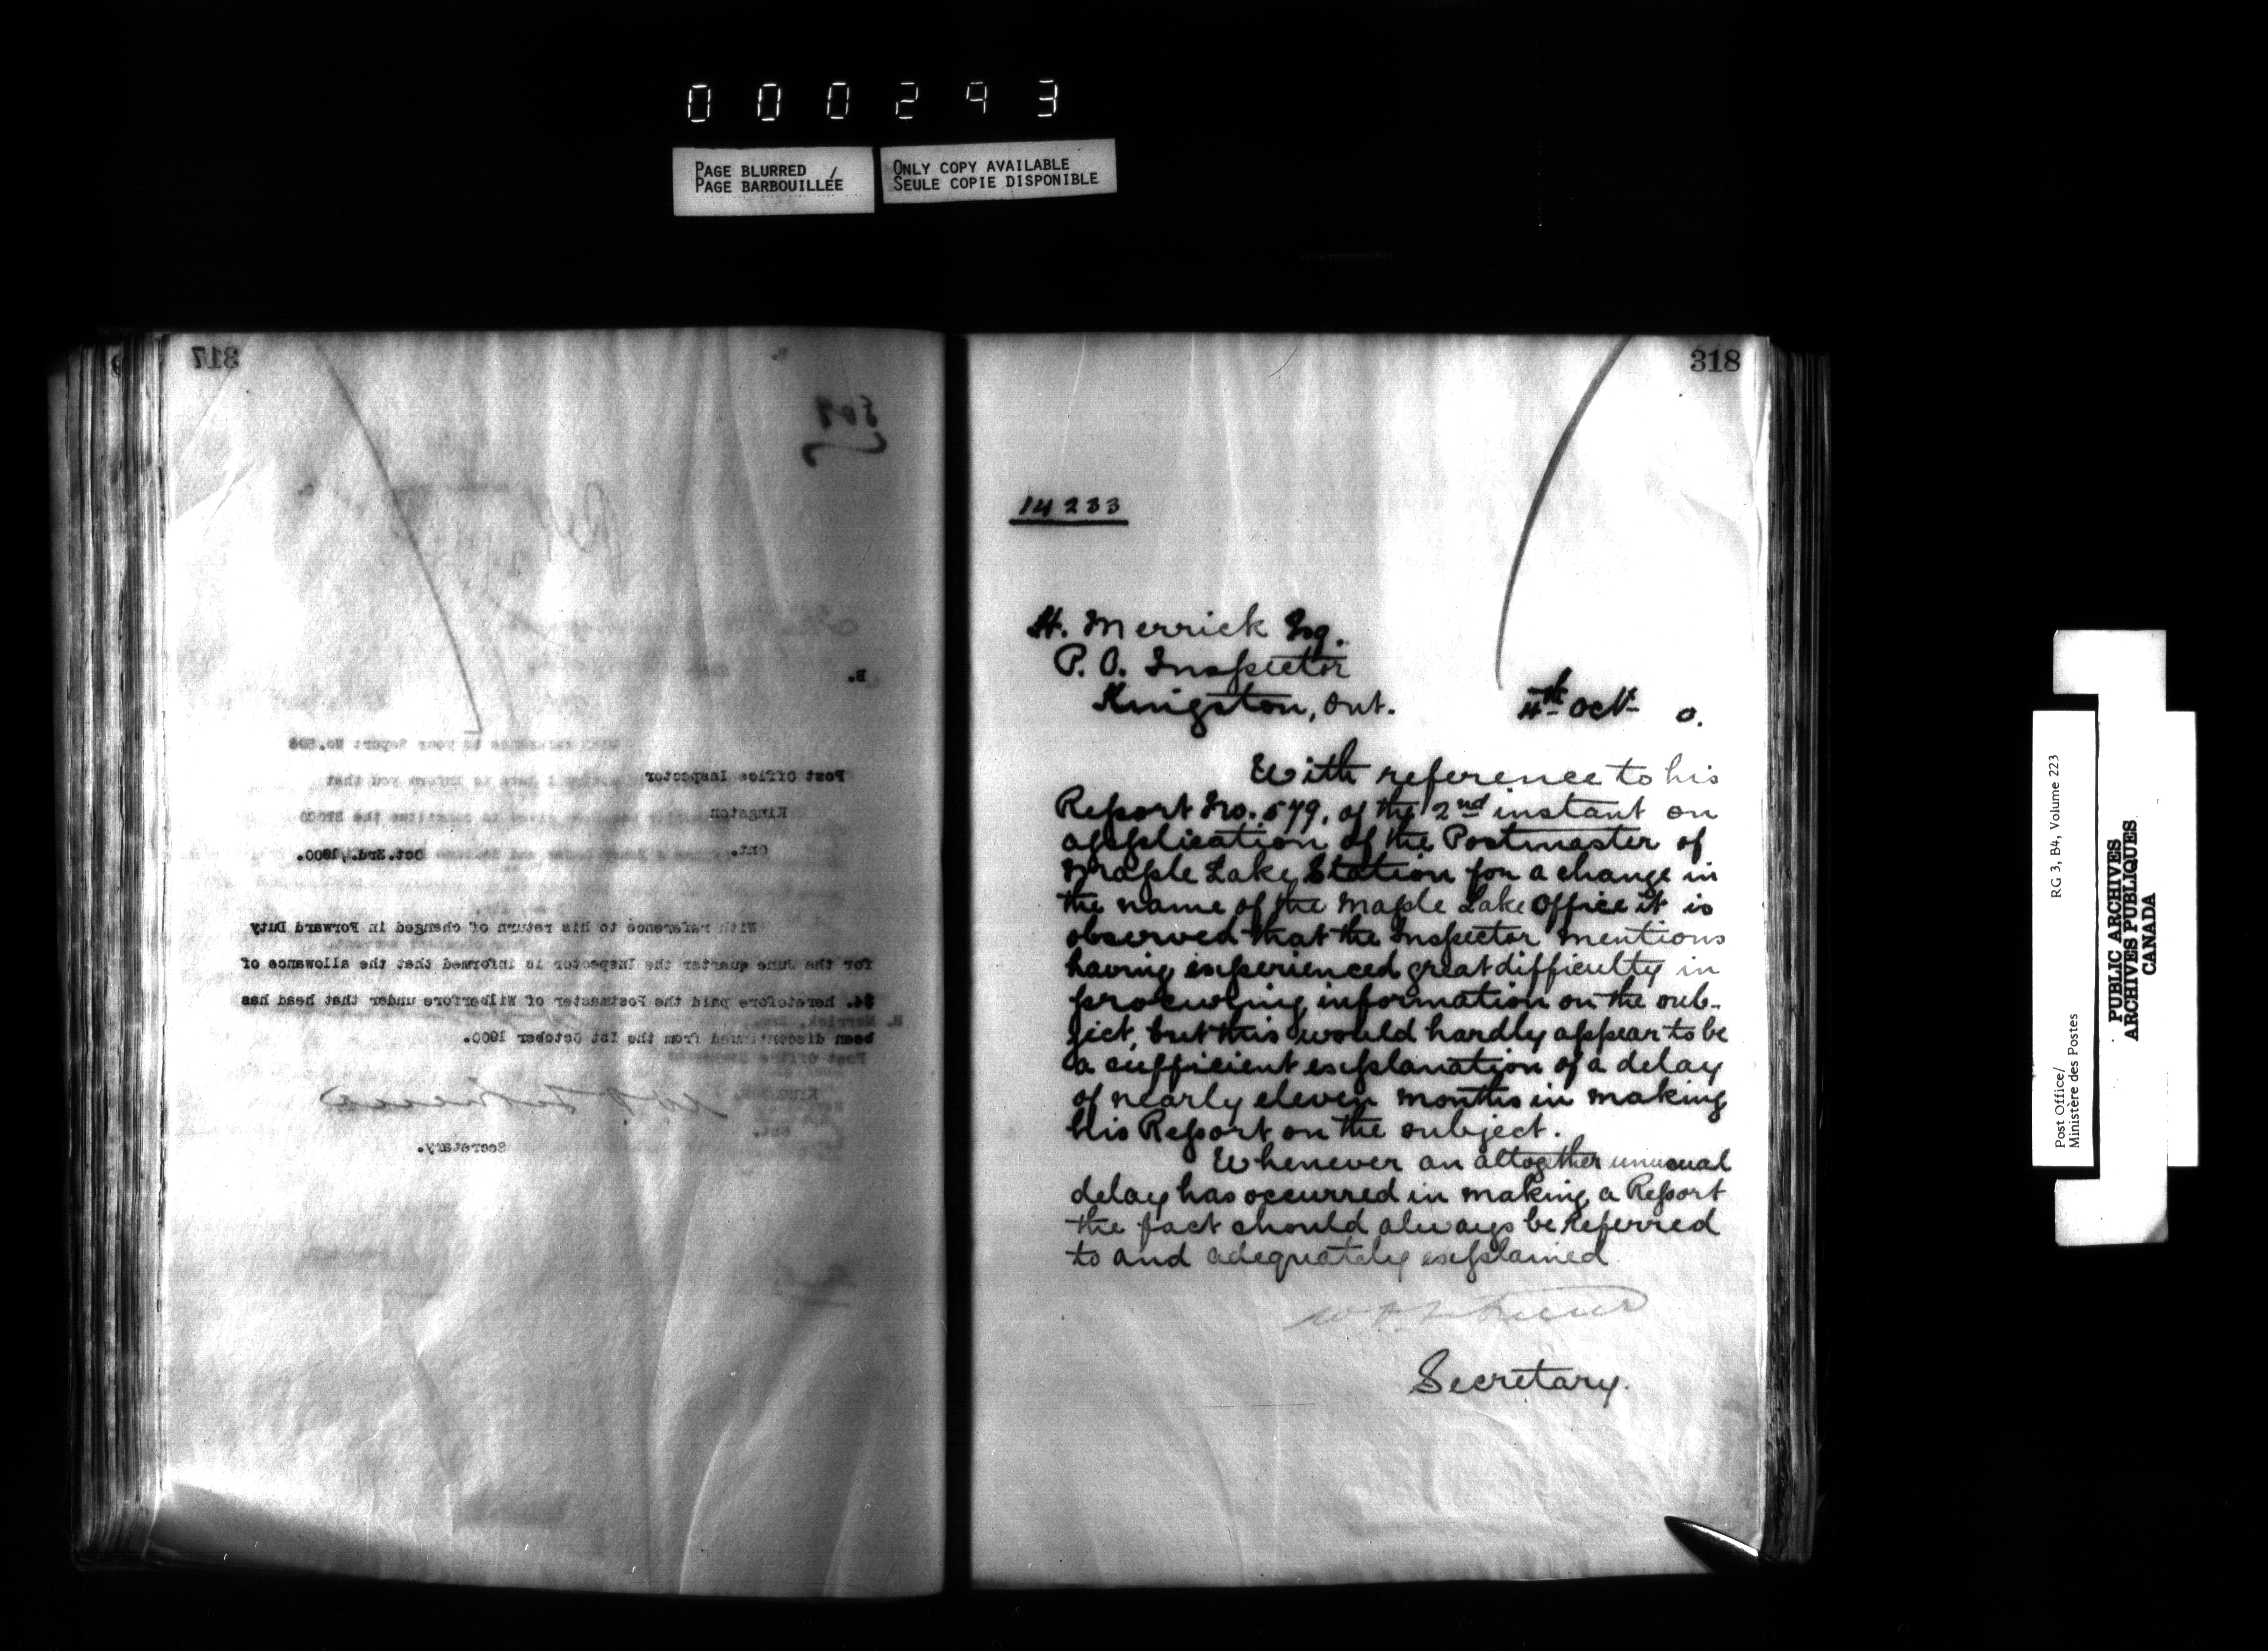 000293
PAGE BLURRED /
PAGE BARBOUILLÉE
ONLY COPY AVAILABLE
SEULE COPIE DISPONIBLE
317
509
B.
Post Office Inspector
Kingston
Ont.
Oct.3rd.,1900.
With reference to his return of changed in Forward Duty
for the June quarter the Inspector is informed that the allowance of
$4. heretofore paid the Postmaster of Wilberforce under that head has
been discontinued from the 1st October 1900.
Secretary.
318
14233
H. Merrick Esq.
P. O. Inspector
Kingston, Ont.
4th Oct 0.
With reference to his
Report No. 579, of the 2nd instant on
application of the Postmaster of
Maple Lake Station for a change in
the name of the Maple Lake Office it is
observed that the Inspector mentions
having experienced great difficulty in
procuring information on the sub-
ject, but this would hardly appear to be
a sufficient explanation of a delay
of nearly eleven months in making
his Report on the subject.
Whenever an altogether unusual
delay has occurred in making a Report
the fact should always be referred
to and adequately explained
Secretary.
Post Office/
Ministère des Postes
RG 3, B4, Volume 223
PUBLIC ARCHIVES
ARCHIVES PUBLIQUES
CANADA